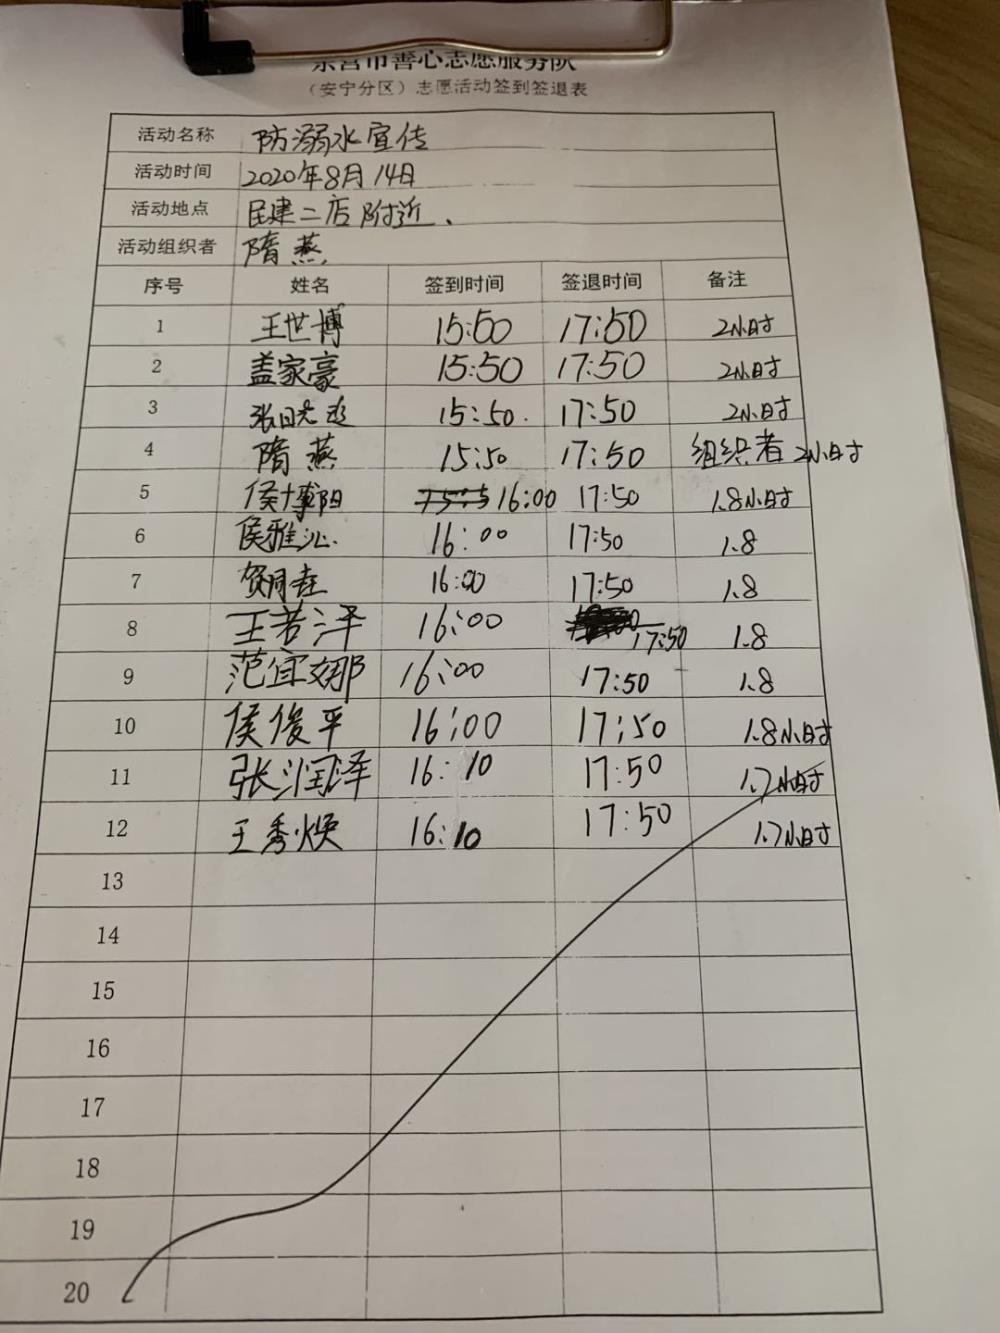 东营市善心志愿服务队
（安宁分区）志愿活动签到签退表
活动名称 防溺水宣传
活动时间 2020年8月14日
活动地点 民建二店附近、
活动组织者 隋燕
序号 姓名 签到时间 签退时间 备注
1 王世博 15:50 17:50 2小时
2 盖家豪 15:50 17:50 2小时
3 15:50. 17:50 2小时
4 隋燕 15:50 17:50 组织者 2小时
5 侯博阳 16:00 17:50 1.8小时
6 侯雅沁 16:00 17:50 1.8
7 16:00 17:50 1.8
8 王若泽 16:00 17:50 1.8
9 范宜娜 16:00 17:50 1.8
10 侯俊平 16:00 17:50 1.8小时
11 张润泽 16:10 17:50 1.7小时
12 王秀焕 16:10 17:50 1.7小时
13
14
15
16
17
18
19
20